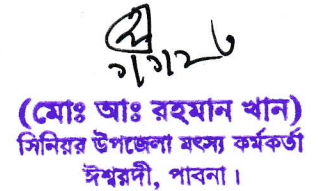 (মোঃ আঃ রহমান খান)
সিনিয়র উপজেলা মৎস্য কর্মকর্তা
ঈশ্বরদী, পাবনা।